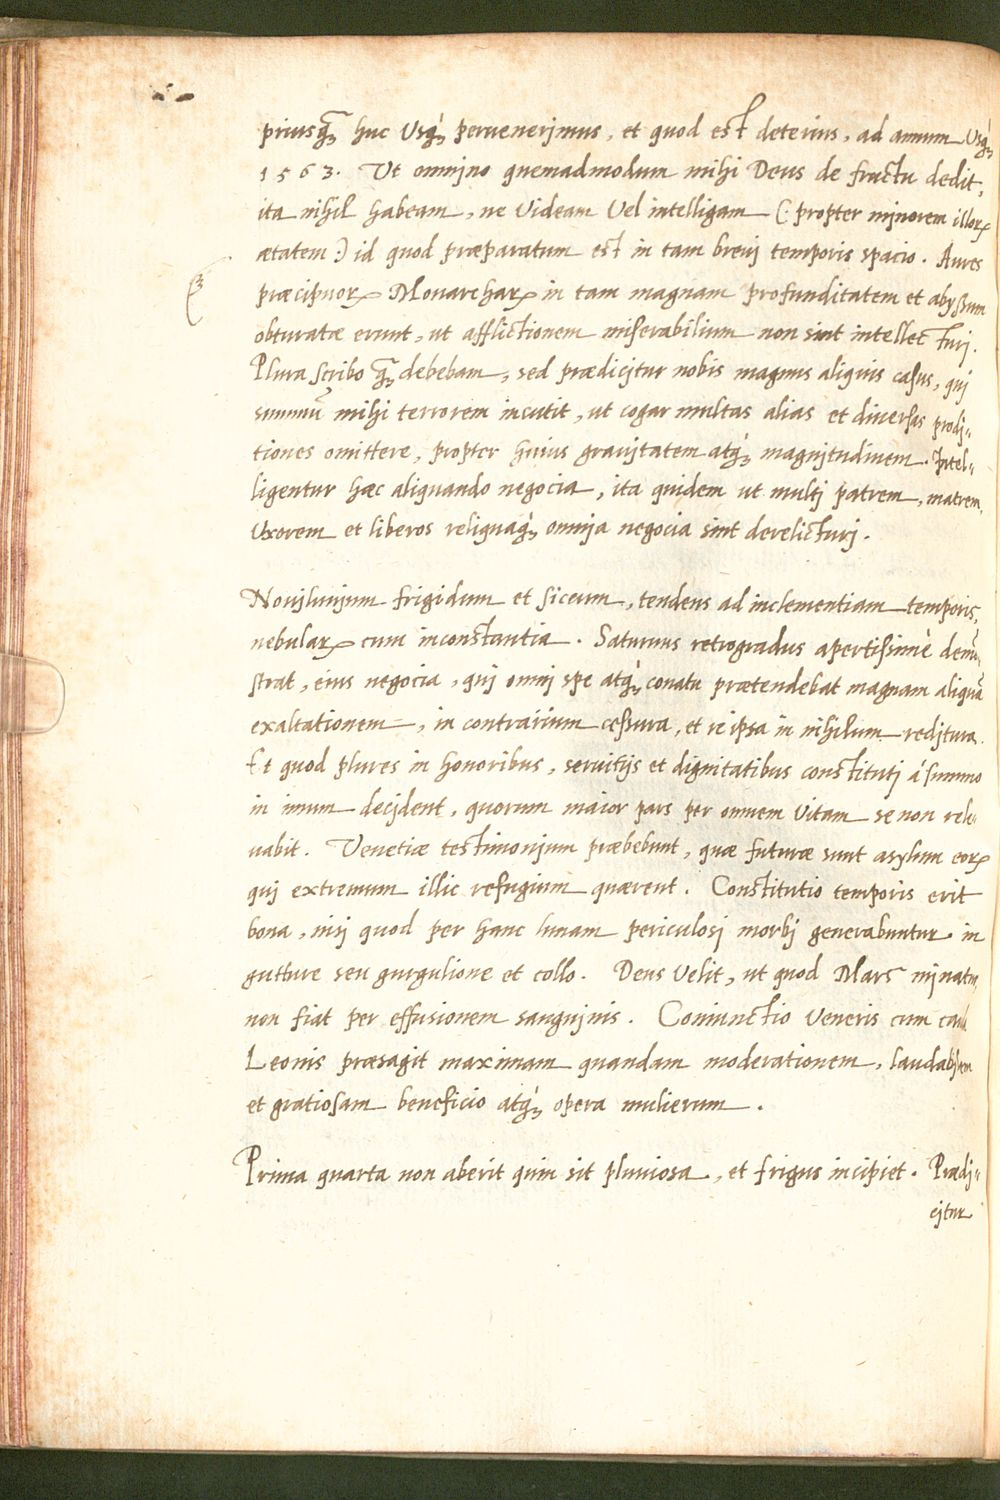 priusq̃ȝ huc Usq́ȝ peruenerjmus, et quod est deterius, ad annum Usq́ȝ
1563. Ut omnjno quemadmodum mihi Deus de fructu dedit,
ita nihil habeam, ne Videam Vel intelligam (: propter mjnorem illorꝝ
ætatem :) id quod præparatum est in tam breuj temporis spacio. Aures
præcipuorꝝ Monarcharꝝ in tam magnam profunditatem et abyssum
obturatæ erunt, ut afflictionem miserabilium non sint intellecturj.
Plura scribo q̃ȝ debebam, sed prædicjtur nobis magnus aliquis casus, quj
summũ mihi terrorem incutit, ut cogar multas alias et diuersas prodj„
tiones omittere, propter huius graujtatem atq́ȝ magnjtudinem. Jntel„
ligentur hæc aliquando negocia, ita quidem ut multj patrem, matrem,
Uxorem et liberos reliquaq́ȝ omnja negocia sint derelicturj.
Nouilunjum frigidum et siccum, tendens ad inclementiam temporis,
nebularꝝ cum inconstantia. Saturnus retrogradus apertissimè demũ
strat, eius negocia, quj omnj spe atq́ȝ conatu prætendebat magnam aliquã
exaltationem, in contrarium cessura, et re ipsa in nihilum redjtura.
Et quod plures in honoribus, seruitijs et dignitatibus constitutj á summo
in imum decjdent, quorum maior pars per omnem Vitam se non rele
uabit. Venetiæ testimonjum præbebunt, quæ futuræ sunt asylum eorꝝ
quj extremum illic refugium quærent. Constitutio temporis erit
bona, nisj quod per hanc lunam periculosj morbj generabuntur in
gutture seu gurgulione et collo. Deus Velit, ut quod Mars mjnatur
non fiat per effusionem sangujnis. Coniunctio Veneris cum
Leonis præsagit maximam quandam moderationem, laudabjlem
et gratiosam beneficio atq́ȝ opera mulierum.
Prima quarta non aberit quin sit pluuiosa, et frigus incipiet. Prædj„
cjtur